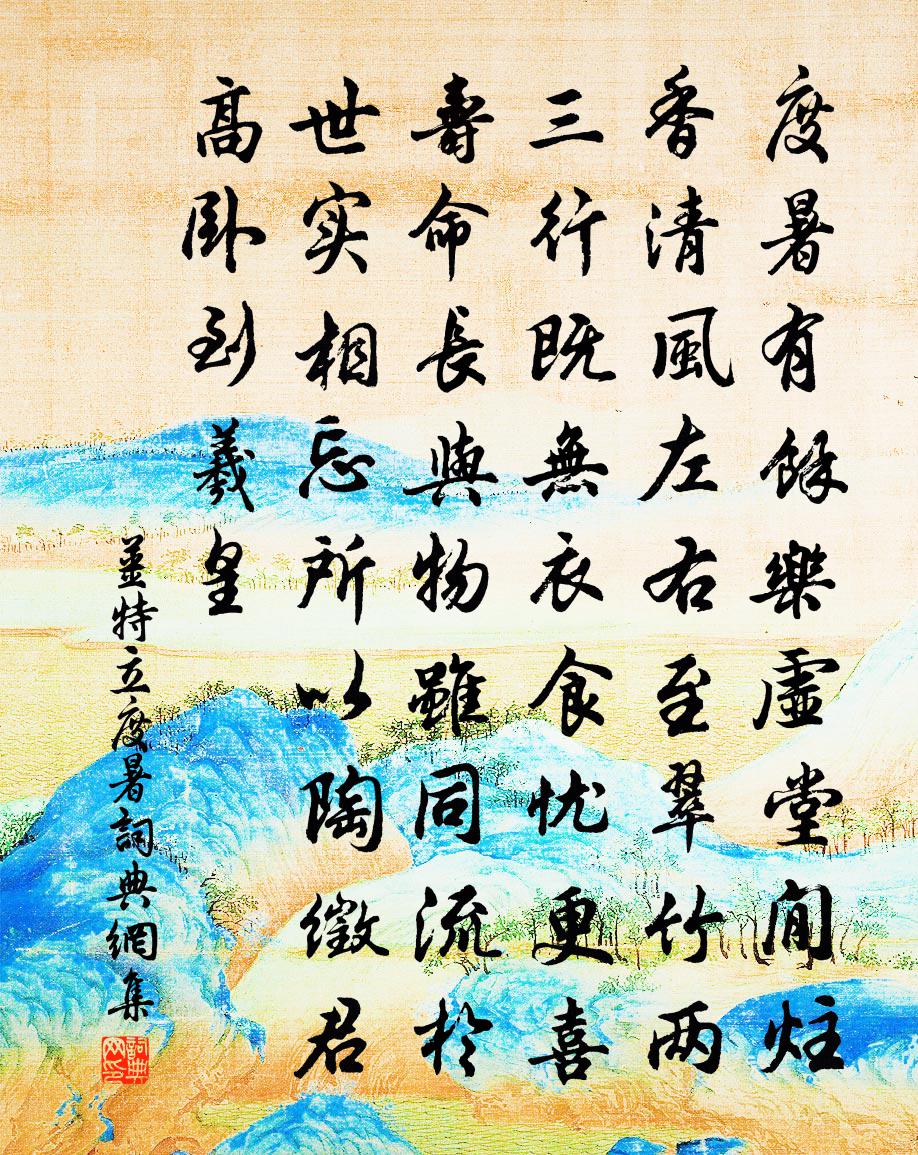 度暑有餘樂虛堂閒炷
香清風左右至翠竹两
三行既無衣食忧更喜
壽命長與物雖同流於
世实相忘所以陶徵君
高卧到羲皇
姜特立度暑詞典網集
詞典网印